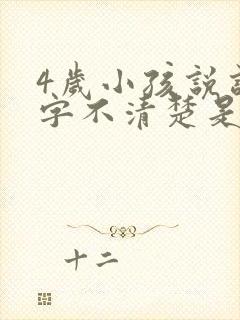 4歲小孩說
字不清楚是
十二